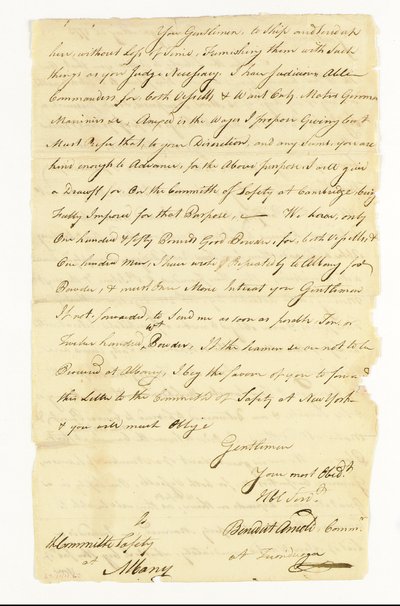 Your Gentlemen, to Ship and send up
here, without Loss of Time, Furnishing them with Such
things as you Judge Necessary. I have Judicious Able
Commanders for both Vessells & Want Only, Mates Gunners
Mariners &c, is the Wages I propose Giving but
Must Refer that, to your Discretion, and any Sums, you are
kind enough to Advance, for the Above purpose I will give
a Draught for On the Committe of Safety at Cambridge, being
Fully Impowr'd for that Purpose, — We have, only
One hundred & fifty Pounds Good Powder, for, both Vessells, &
One hundred Men, I have wrote Repeatedly to Albany for
Powder, & must Once More Intreat you Gentlemen
If not, forwarded, to Send me as soon as posible Ten, or
Twelve hundred, Wt Powder, If the Seamen &c are not to be
Procured at Albany, I beg the favor of you to forward
this Letter to the Committee of Safety at New York
& you will much Oblige
Gentlemen
Your most Obedt
Hble Servt
Benedict Arnold, Commr
at Ticondroga
To
the Committe Safety
at
Albany